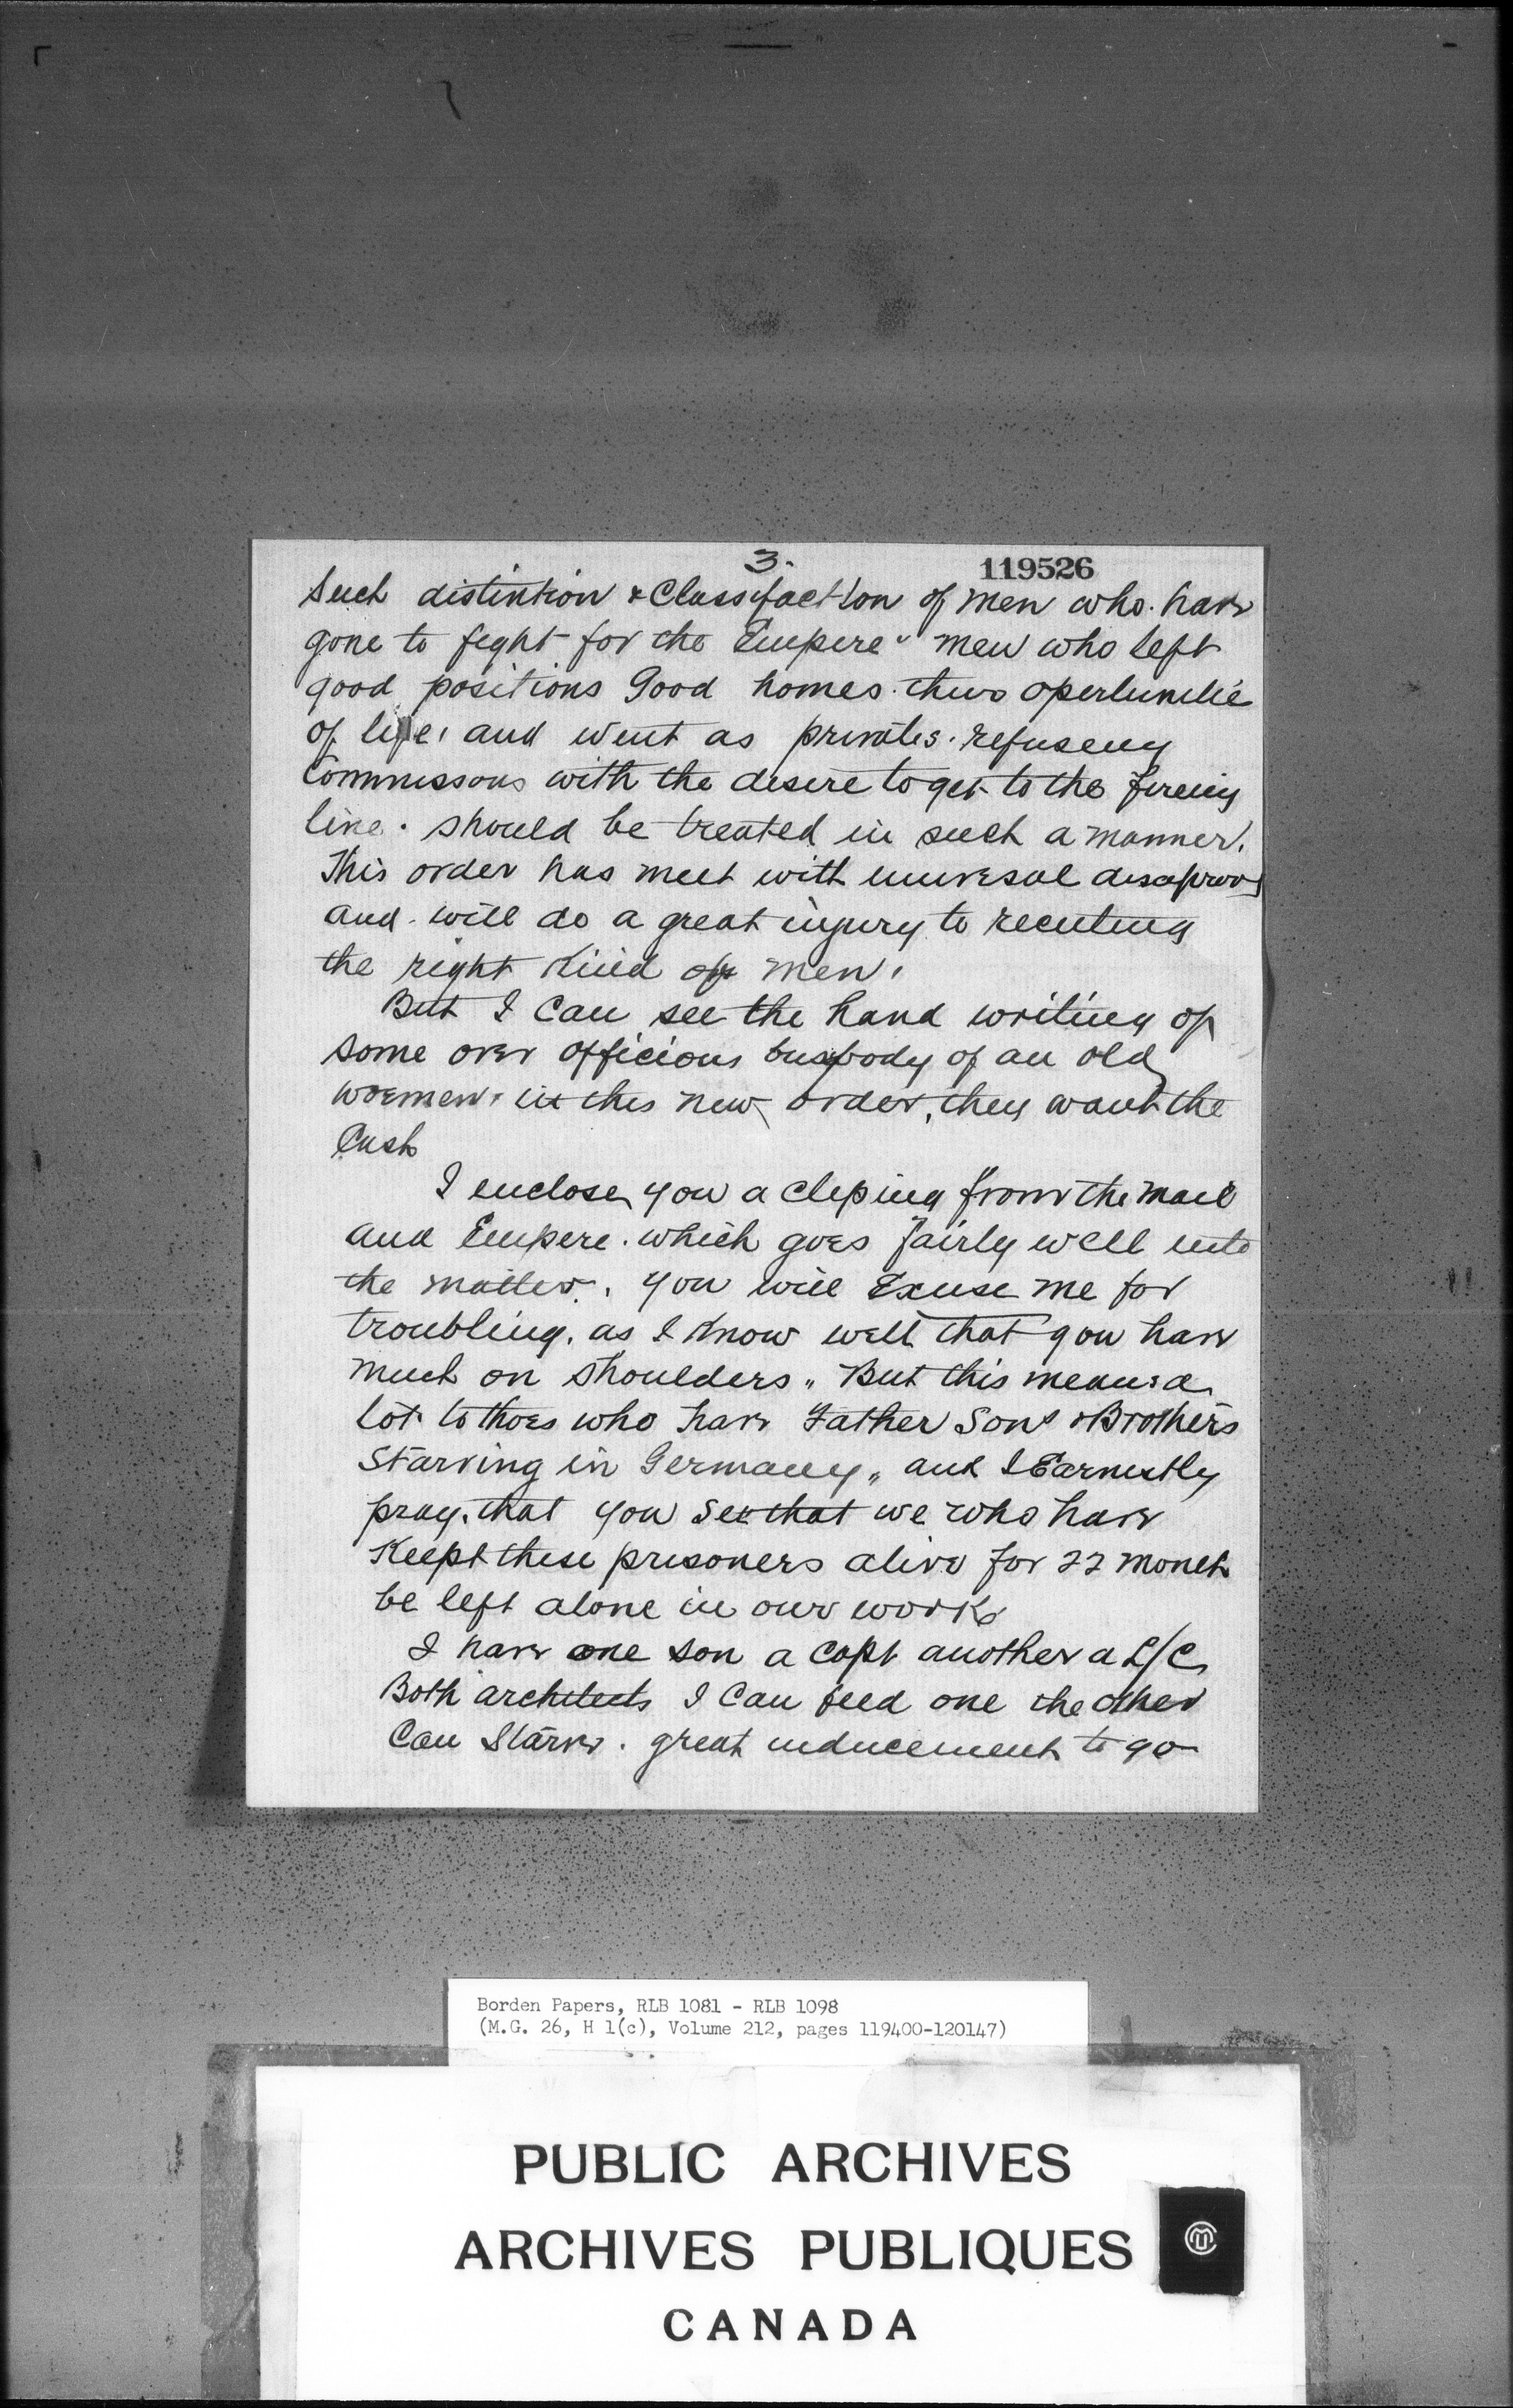 3.
119526
Such distintion & Classifaction of men who. have
gone to fight for the Empere" men who left
good positions Good homes. thier operlunitie
of life, and went as privates. refuseing
Commissons with the desere to get to the fireing
line. should be treated in such a manner.
This order has meet with universal disaproval
and. will do a great injury to recuting
the right kind of men,
But I Can see the hand writing of
some over officious busybody of an old
woemen, in this new order, they want the
Cash
I enclose you a cleping from the Mail
and Empere. which goes fairly well into
the matter. you will Excuse me for
troubling. as I know well that you have
much on shoulders " But this means a
lot to thoes who have Father Sons & Brothers
Starving in Germany " and I Earnestly
pray. that you see that we who have
Keept these prisoners alive for 22 month
be left alone in our work
I have one son a Capt another a L/C
Both architects I Can feed one the other
Can Starve. great inducement to go
Borden Papers, RLB 1081 - RLB 1098
(M.G. 26, H 1(c), Volume 212, pages 119400-120147)
PUBLIC ARCHIVES
ARCHIVES PUBLIQUES
CANADA